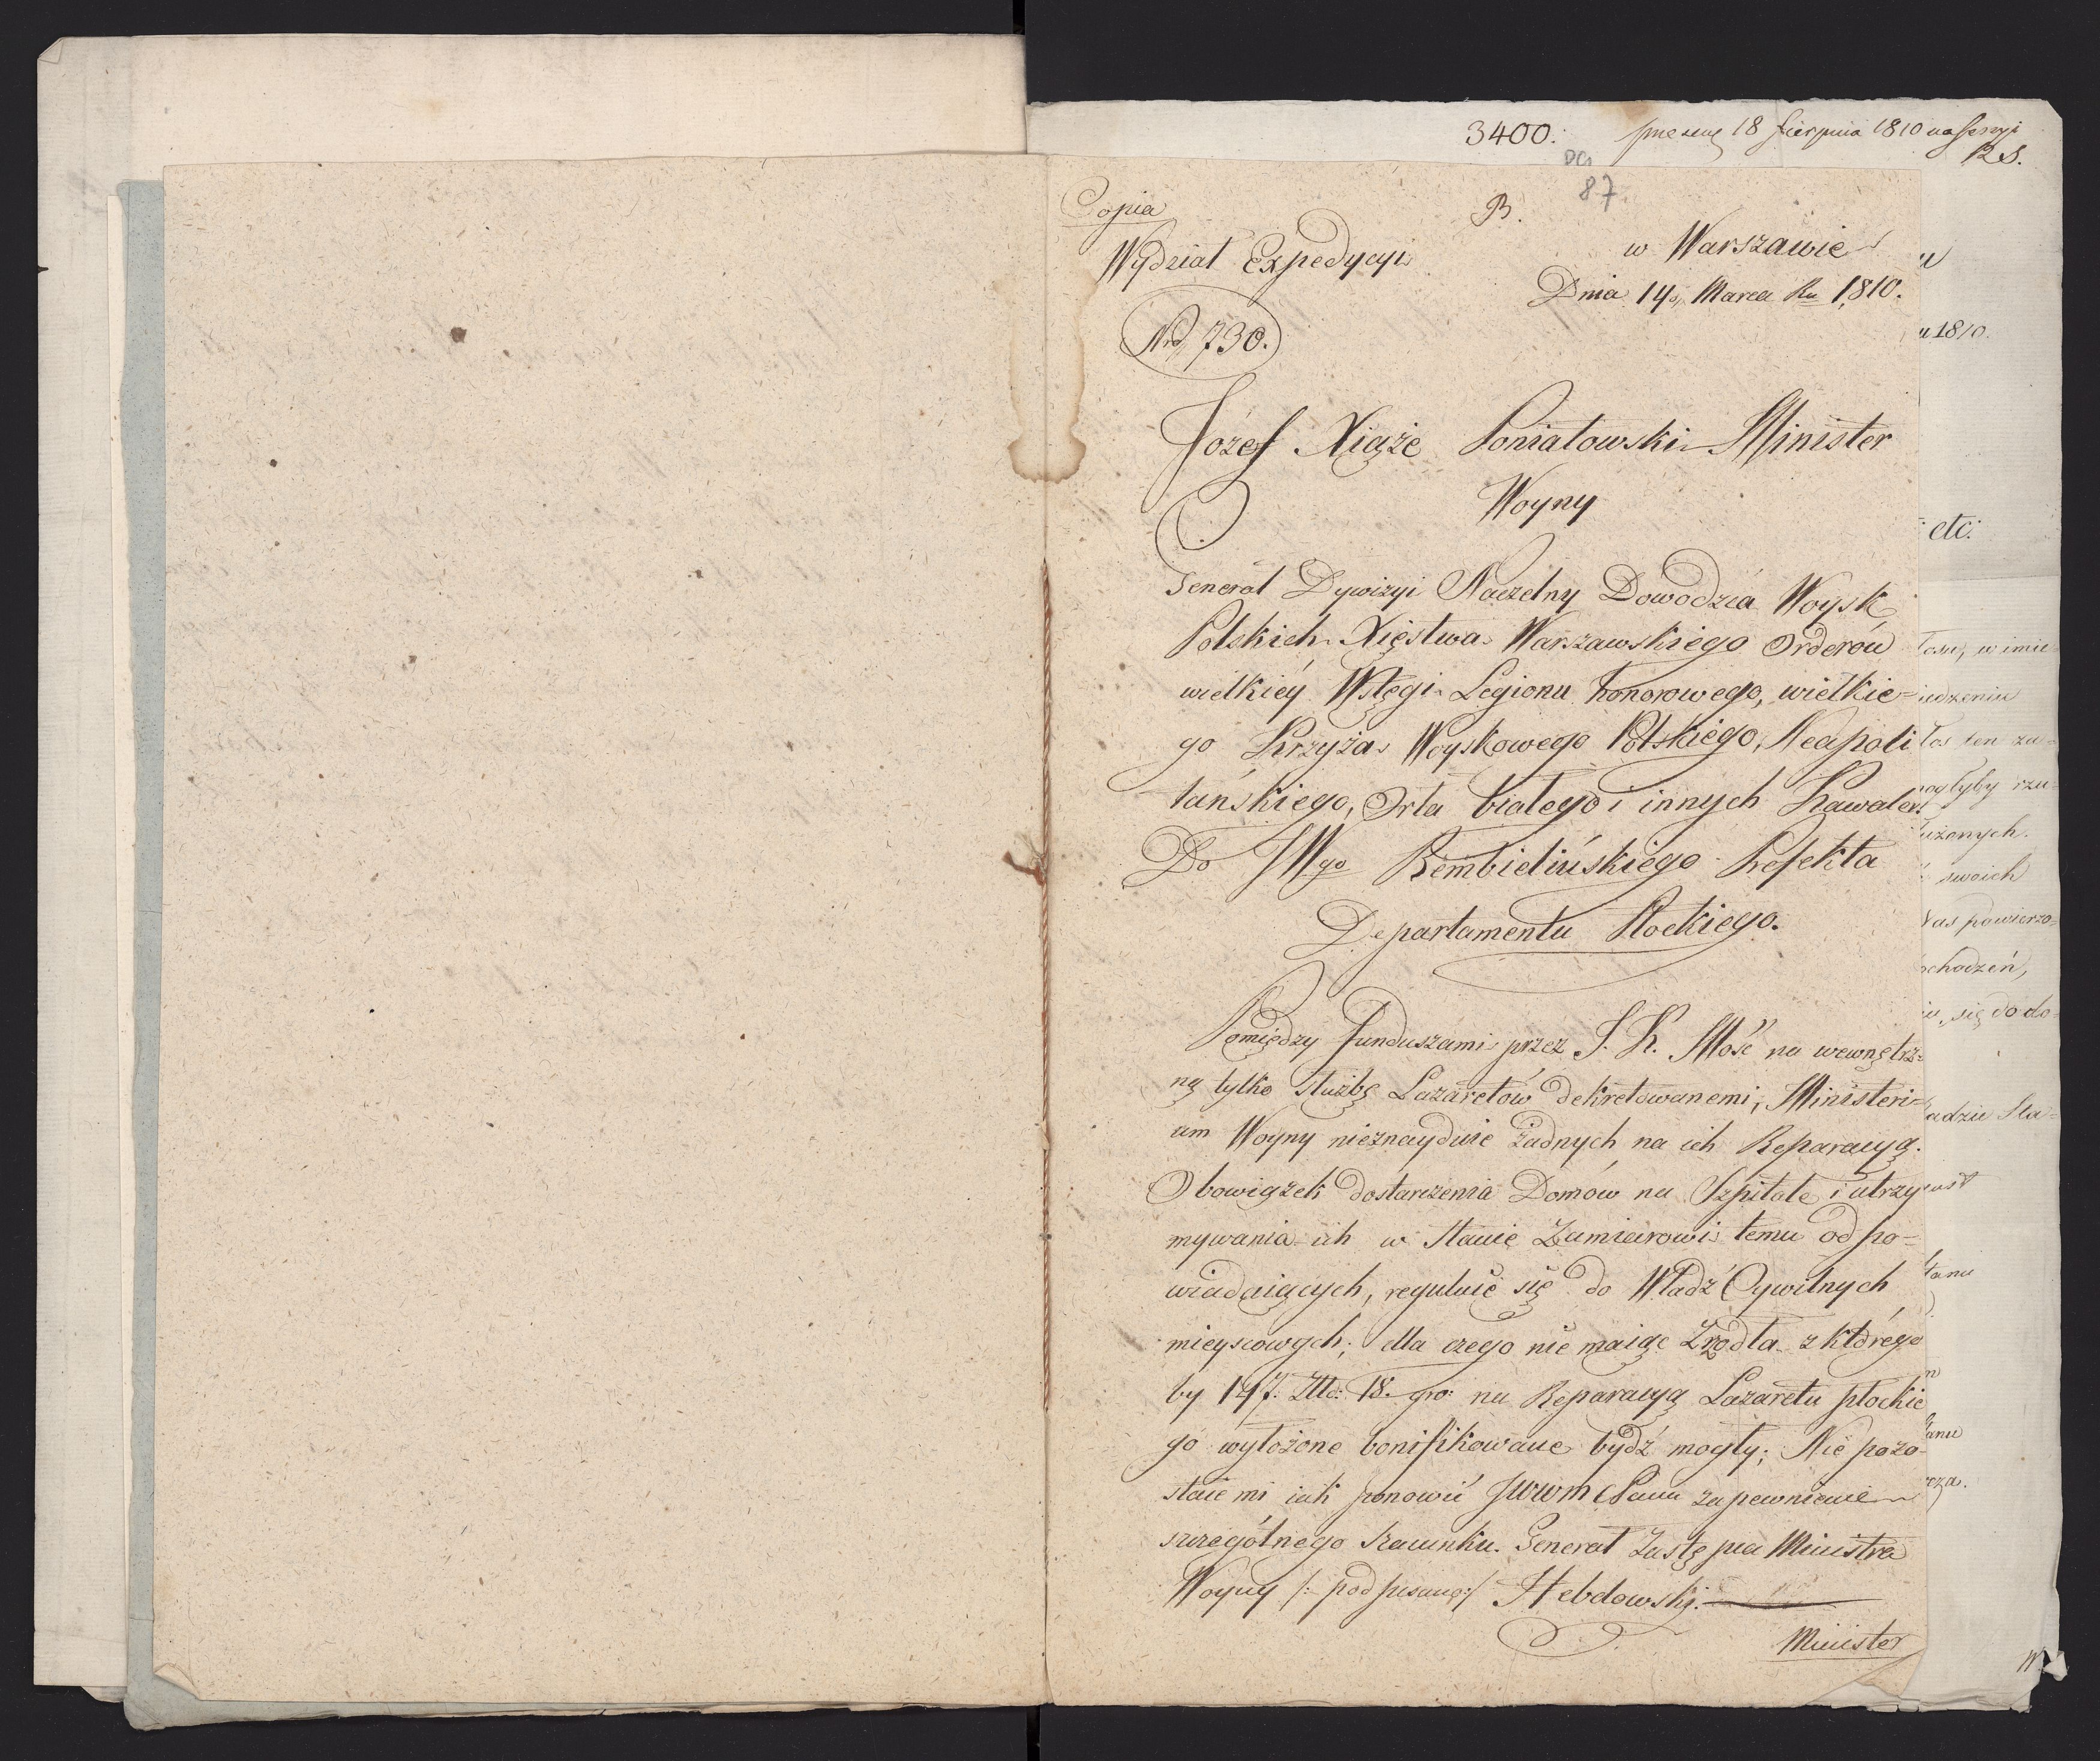 3400. 18 Sierpnia 1810 na Sessyi
RS.
87.
Copia
B.
Wydział Expedycyi
w Warszawie
Dnia 14. Marca Ru 1810.
Nro 730.
Józef Xiąże Poniatowski Minister
Woyny
Generał Dywizyi Naczelny Dowodzca Woysk
Polskich Xięstwa Warszawskiego Orderów
wielkiéy Wstęgi Legionu honorowego, wielkie=
go Krzyża Woyskowego Polskiego, Neapoli
tańskiego, Orła białego i innych Kawaler.
Do JWgo Rembielińskiego Prefekta
Departamentu Płockiego.
Pomiędzy funduszami przez J. K. Mość na wewnętrz=
ną tylko służbę Lazaretów dekretowanemi, Ministeri=
um Woyny nieznayduie żadnych na ich Reparacyą.
Obowiązek dostarczenia Domów na Szpitale i utrzy
mywania ich w stanie Zamiarowi temu odpo=
wiadaiących, reguluie się do Władz Cywilnych
mieyscowych; dla czego nie maiąc Zrzodła z którego
by 147. Złlo: 18. gro: na Reparacyą Lazaretu płockie
go wyłożone bonifikowane bydź mogły; Nie pozo=
staie mi iak ponowić JWWM Panu zapewnienie
szczególnego szacunku. Generał Zastępca Ministra
Woyny /: podpisano:/ Hebdowski.
Minister
u 1810.
etc:
łosu, w imie
iedzeniu
łos ten za=
mogłyby rzu=
użonych.
swoich
Nas powierzo=
ochodzeń,
się do do=
adzie Sta=
tanu
anu
rza.